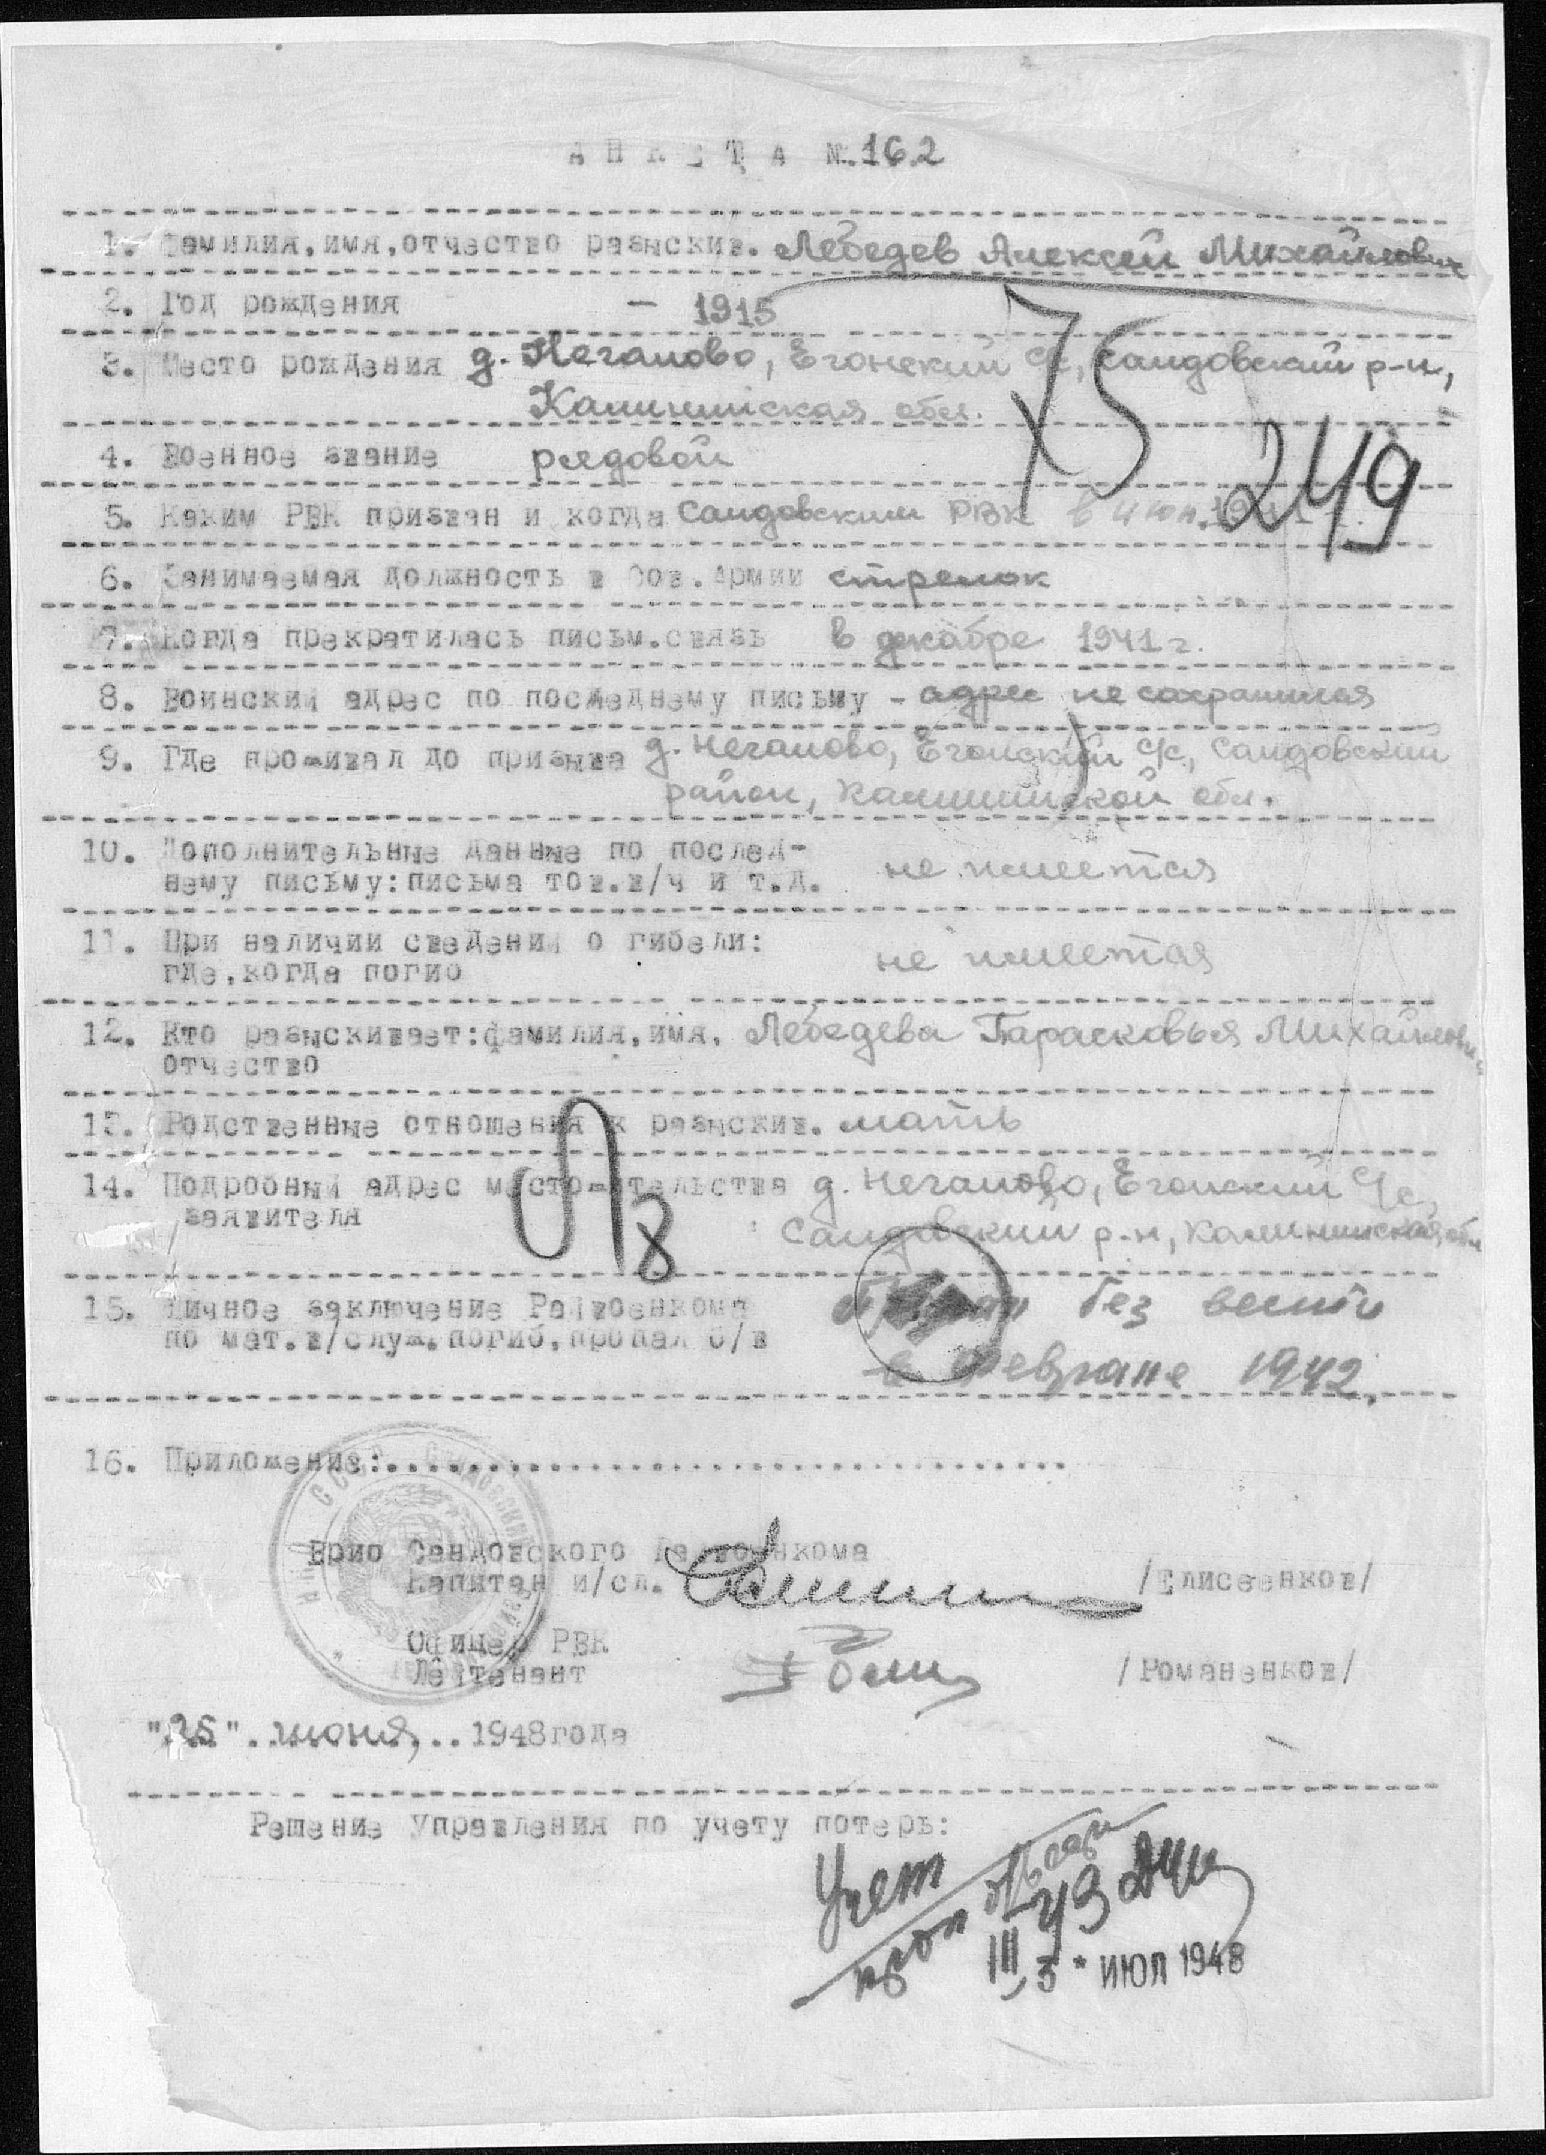 АНКЕТА №.162
1. Фамилия,имя,отчество разыскив. Лебедев Алексей Михайлович
2. Год рождения - 1915
3. Место рождения д. Неганово, Егонский с/с, Сандовский р-н,
Калининская обл.
75
249
4. Военное звание рядовой
5. Каким РВК призван и когда Сандовским РВК в июн. 1941 г.
6. Занимаемая должность в Сов.Армии стрелок
7. Когда прекратилась письм.связь в декабре 1941 г.
8. Воинский адрес по последнему письму - адрес не сохранился
9. Где проживал до призыва д. Неганово, Егонский с/с, Сандовский
район, Калининской обл.
10. Дополнительные данные по послед-
нему письму:письма тов.в/ч и т.д. не имеется
11. При наличии сведений о гибели:
где,когда погиб не имеется
12. Кто разыскивает:фамилия,имя, Лебедева Парасковья Михайловна
отчество
13. Родственные отношения к разыскив. мать
14. Подробный адрес местожительства д. Неганово, Егонский с/с,
заявителя Сандовский р-н, Калининская обл
15. Личное заключение Райвоенкома пропал без вести
по мат.в/служ.погиб,пропал б/в
в феврале 1942.
16. Приложение:........................................
Врио Сандовского Райвоенкома
Капитан и/сл. /Елисеенков/
Офицер РВК
Лейтенант /Романенков/
"25" июня 1948года
Решение Управления по учету потерь:
Учет
проп
III 43
3 * ИЮЛ 1948